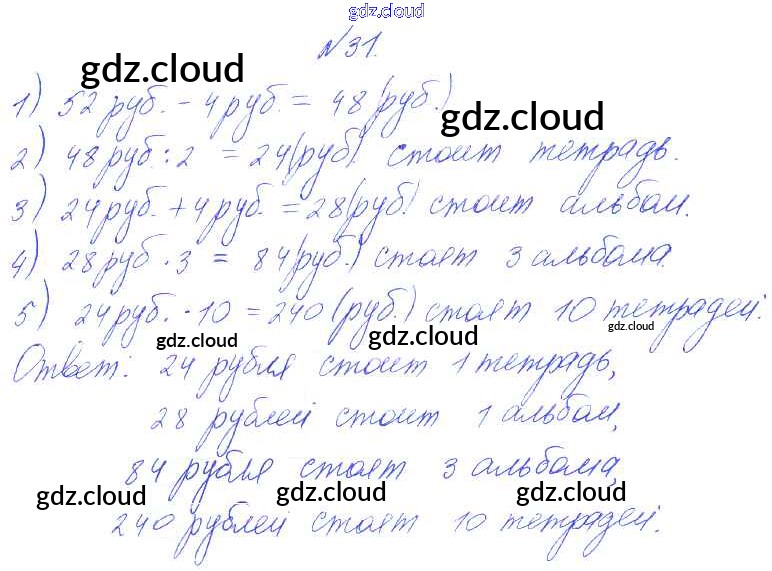 gdz.cloud
№31.
gdz.cloud
1) 52 руб. - 4 руб. = 48 (руб.)
gdz.cloud
2) 48 руб : 2 = 24 (руб) стоит тетрадь.
3) 24 руб. + 4 руб. = 28 (руб.) стоит альбом.
4) 28 руб · 3 = 84 (руб.) стоят 3 альбома.
5) 24 руб. · 10 = 240 (руб.) стоят 10 тетрадей.
gdz.cloud gdz.cloud gdz.cloud
Ответ: 24 рубля стоит 1 тетрадь,
28 рублей стоит 1 альбом,
84 рубля стоят 3 альбома,
gdz.cloud gdz.cloud gdz.cloud
240 рублей стоят 10 тетрадей.